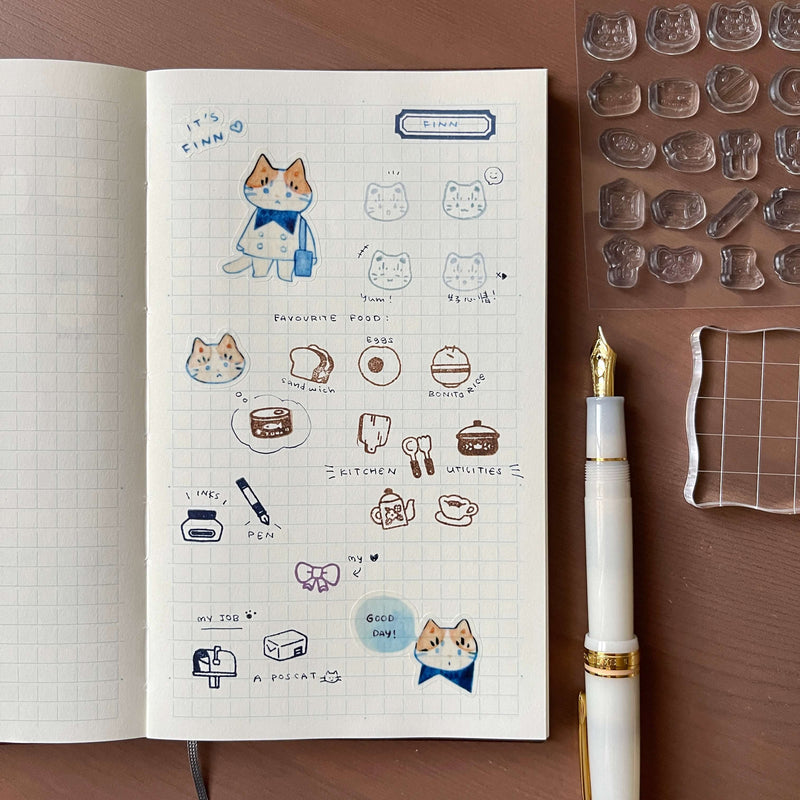 IT'S
FINN
FINN
Yum!
好心情!
FAVOURITE FOOD:
EGGS
Sandwich
BONITO RICE
TUNA
KITCHEN UTILITIES
INKS
PEN
my
MY JOB
GOOD
DAY!
A POSCAT